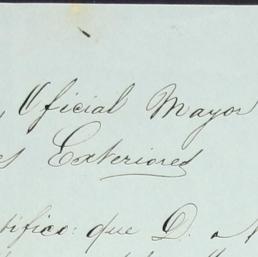 Oficial Mayor
es Exteriores
tifico: que D. A